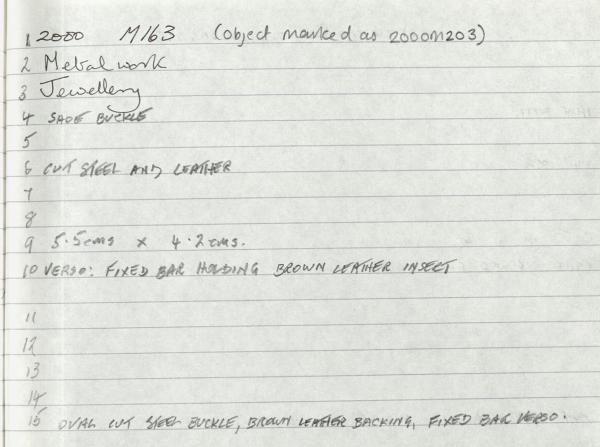 1 2000 M163 (object marked as 2000M203)
2 Metalwork
3 Jewellery
4 SHOE BUCKLE
5
6 CUT STEEL AND LEATHER
7
8
9 5.5cms x 4.2cms.
10 VERSO: FIXED BAR HOLDING BROWN LEATHER INSECT
11
12
13
14
15 OVAL CUT STEEL BUCKLE, BROWN LEATHER BACKING, FIXED BAR VERSO.